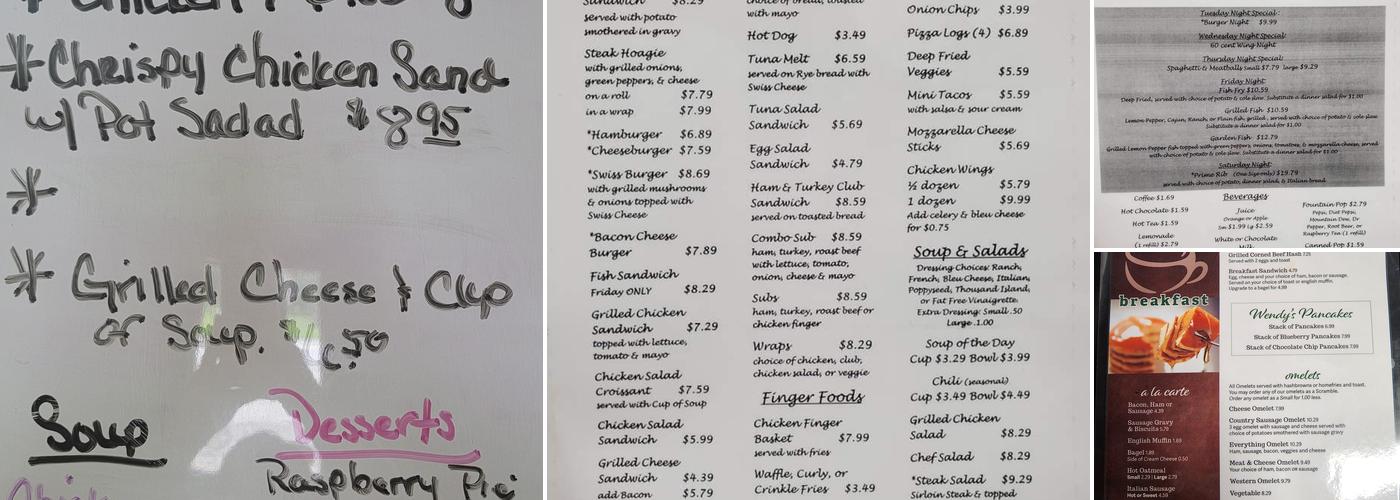 * Chrispy Chicken Sand
w/ Pot Sadad $8 95
*
* Grilled Cheese & Cup
of Soup.
Soup
Desserts
Raspberry Pie
Sandwich $8.29
served with potato
smothered in gravy
Steak Hoagie
with grilled onions,
green peppers, & cheese
on a roll $7.79
in a wrap $7.99
*Hamburger $6.89
*Cheeseburger $7.59
*Swiss Burger $8.69
with grilled mushrooms
& onions topped with
Swiss Cheese
*Bacon Cheese
Burger $7.89
Fish Sandwich
Friday ONLY $8.29
Grilled Chicken
Sandwich $7.29
topped with lettuce,
tomato & mayo
Chicken Salad
Croissant $7.59
served with Cup of Soup
Chicken Salad
Sandwich $5.99
Grilled Cheese
Sandwich $4.39
add Bacon $5.79
choice of bread, toasted
with mayo
Hot Dog $3.49
Tuna Melt $6.59
served on Rye bread with
Swiss Cheese
Tuna Salad
Sandwich $5.69
Egg Salad
Sandwich $4.79
Ham & Turkey Club
Sandwich $8.59
served on toasted bread
Combo Sub $8.59
ham, turkey, roast beef
with lettuce, tomato,
onion, cheese & mayo
Subs $8.59
ham, turkey, roast beef or
chicken finger
Wraps $8.29
choice of chicken, club,
chicken salad, or veggie
Finger Foods
Chicken Finger
Basket $7.99
served with fries
Waffle, Curly, or
Crinkle Fries $3.49
Onion Chips $3.99
Pizza Logs (4) $6.89
Deep Fried
Veggies $5.59
Mini Tacos $5.59
with salsa & sour cream
Mozzarella Cheese
Sticks $5.69
Chicken Wings
½ dozen $5.79
1 dozen $9.99
Add celery & bleu cheese
for $0.75
Soup & Salads
Dressing Choices: Ranch,
French, Bleu Cheese, Italian,
Poppyseed, Thousand Island,
or Fat Free Vinaigrette
Extra Dressing: Small .50
Large .1.00
Soup of the Day
Cup $3.29 Bowl $3.99
Chili (seasonal)
Cup $3.49 Bowl $4.49
Grilled Chicken
Salad $8.29
Chef Salad $8.29
*Steak Salad $9.29
Sirloin Steak & topped
Tuesday Night Special:
*Burger Night $9.99
Wednesday Night Special:
60 cent Wing Night
Thursday Night Special:
Spaghetti & Meatballs Small $7.79 large $9.29
Friday Night:
Fish Fry $10.59
Deep Fried, served with choice of potato & cole slaw. Substitute a dinner salad for $1.00
Grilled Fish $10.59
Lemon Pepper, Cajun, Ranch, or Plain fish, grilled, served with choice of potato & cole slaw
Substitute a dinner salad for $1.00
Garden Fish $12.79
Grilled Lemon Pepper fish topped with green peppers, onions, tomatoes, & mozzarella cheese, served
with choice of potato & cole slaw. Substitute a dinner salad for $1.00
Saturday Night:
*Prime Rib (One Size only) $19.79
served with choice of potato, dinner salad, & Italian bread
Beverages
Coffee $1.69
Hot Chocolate $1.59
Hot Tea $1.59
Lemonade
(1 refill) $2.79
Juice
Orange or Apple
Sm $1.99 Lg $2.59
White or Chocolate
Milk
Fountain Pop $2.79
Pepsi, Diet Pepsi,
Mountain Dew, Dr
Pepper, Root Beer, or
Raspberry Tea (1 refill)
Canned Pop $1.59
breakfast
a la carte
Bacon, Ham or
Sausage 4.39
Sausage Gravy
& Biscuits 5.79
English Muffin 1.89
Bagel 1.89
Side of Cream Cheese 0.50
Hot Oatmeal
Small 2.29 | Large 2.79
Italian Sausage
Hot or Sweet 4.59
Grilled Corned Beef Hash 7.25
Served with 2 eggs and toast
Breakfast Sandwich 4.79
Egg, cheese and your choice of ham, bacon or sausage.
Served on your choice of toast or english muffin.
Upgrade to a bagel for 4.99
Wendy's Pancakes
Stack of Pancakes 6.99
Stack of Blueberry Pancakes 7.99
Stack of Chocolate Chip Pancakes 7.99
omelets
All Omelets served with hashbrowns or homefries and toast.
You may order any of our omelets as a Scramble.
Order any omelet as a Small for 1.00 less.
Cheese Omelet 7.99
Country Sausage Omelet 10.29
3 egg omelet with sausage and cheese served with
choice of potatoes smothered with sausage gravy
Everything Omelet 10.29
Ham, sausage, bacon, veggies and cheese
Meat & Cheese Omelet 9.49
Your choice of ham, bacon or sausage
Western Omelet 9.79
Vegetable 8.29